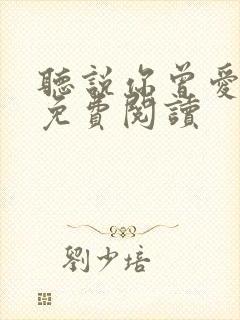 聽說你曾愛
免費閱讀
劉少培